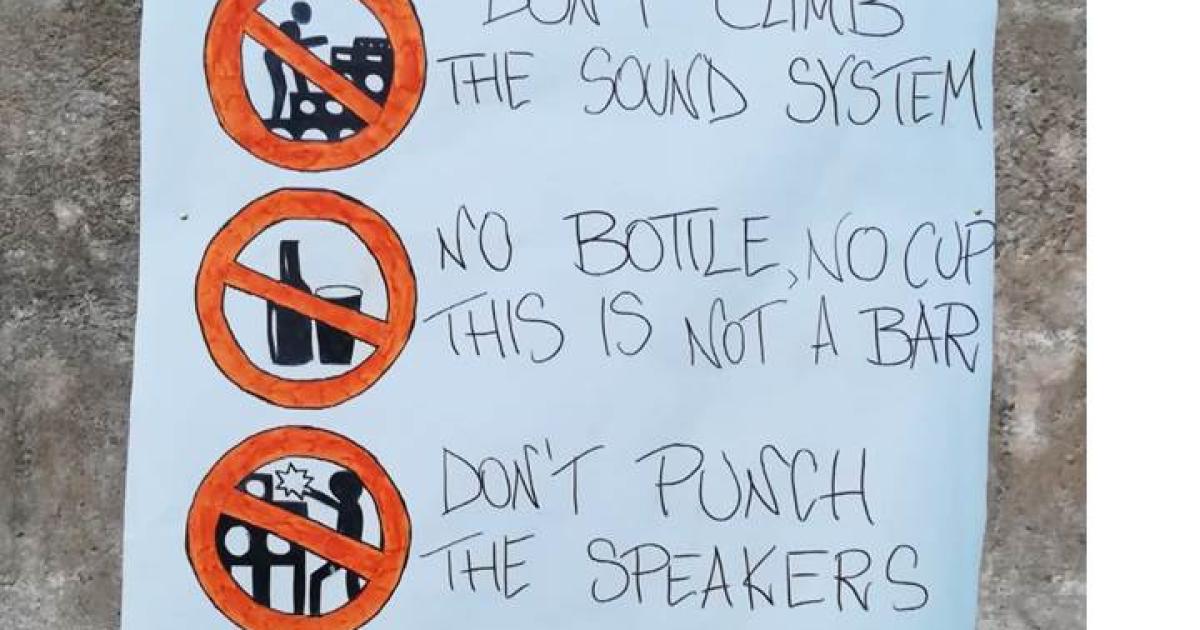 DON'T CLIMB
THE SOUND SYSTEM
NO BOTTLE, NO CUP
THIS IS NOT A BAR
DON'T PUNCH
THE SPEAKERS